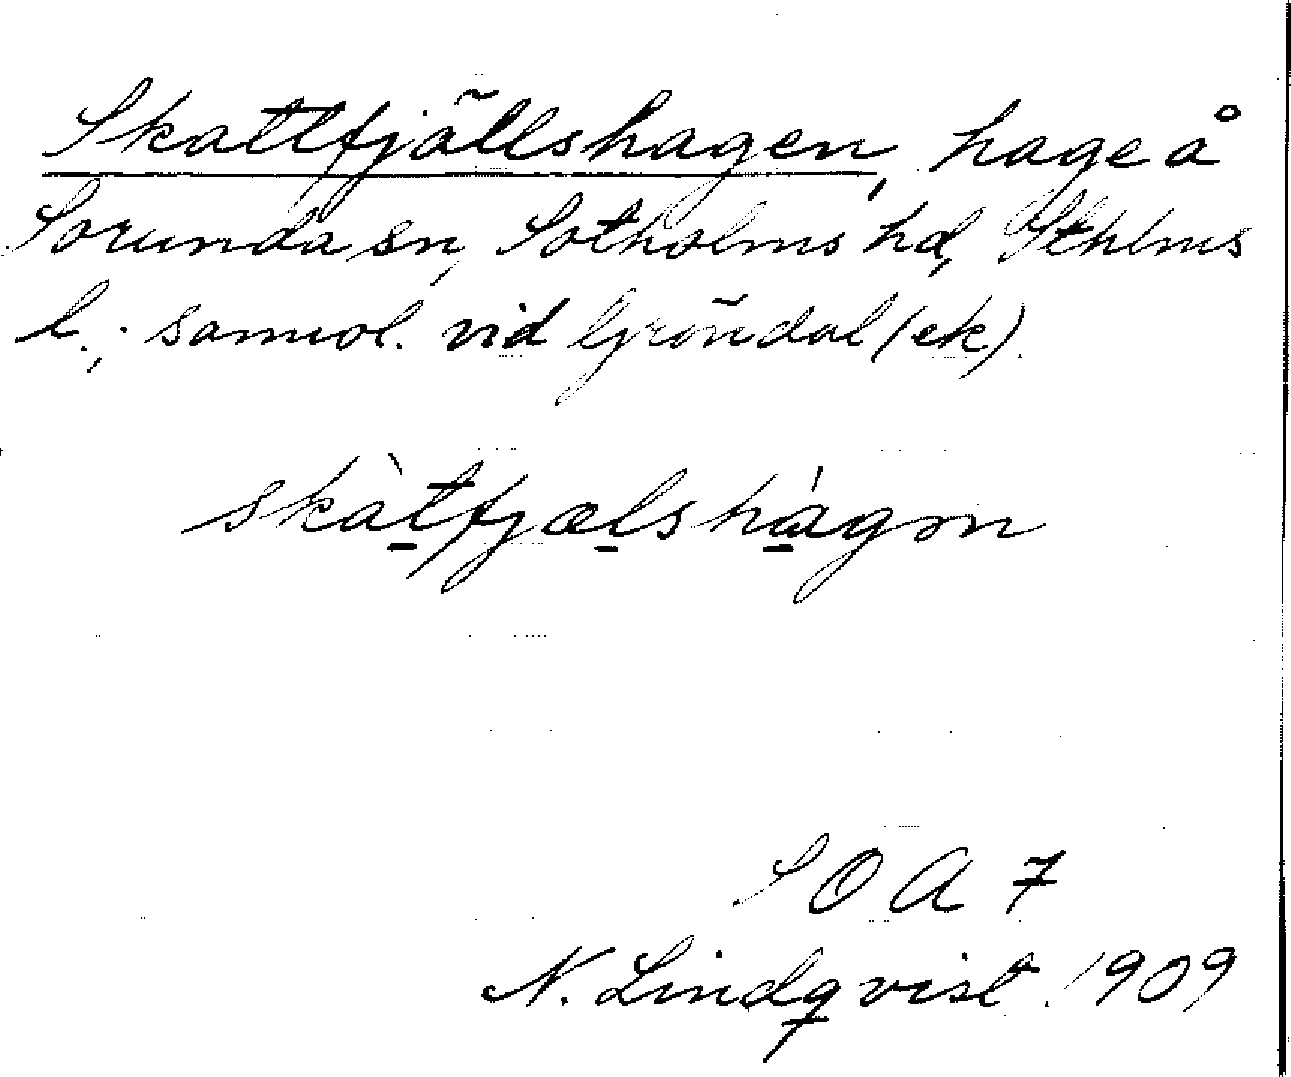 Skattfjällshagen, hage å
Sorunda sn, Sotholms hd, Sthlms
l.; samol. vid Gröndal (ek).
skàtfjælshágɷn
SOA 7
N. Lindqvist 1909